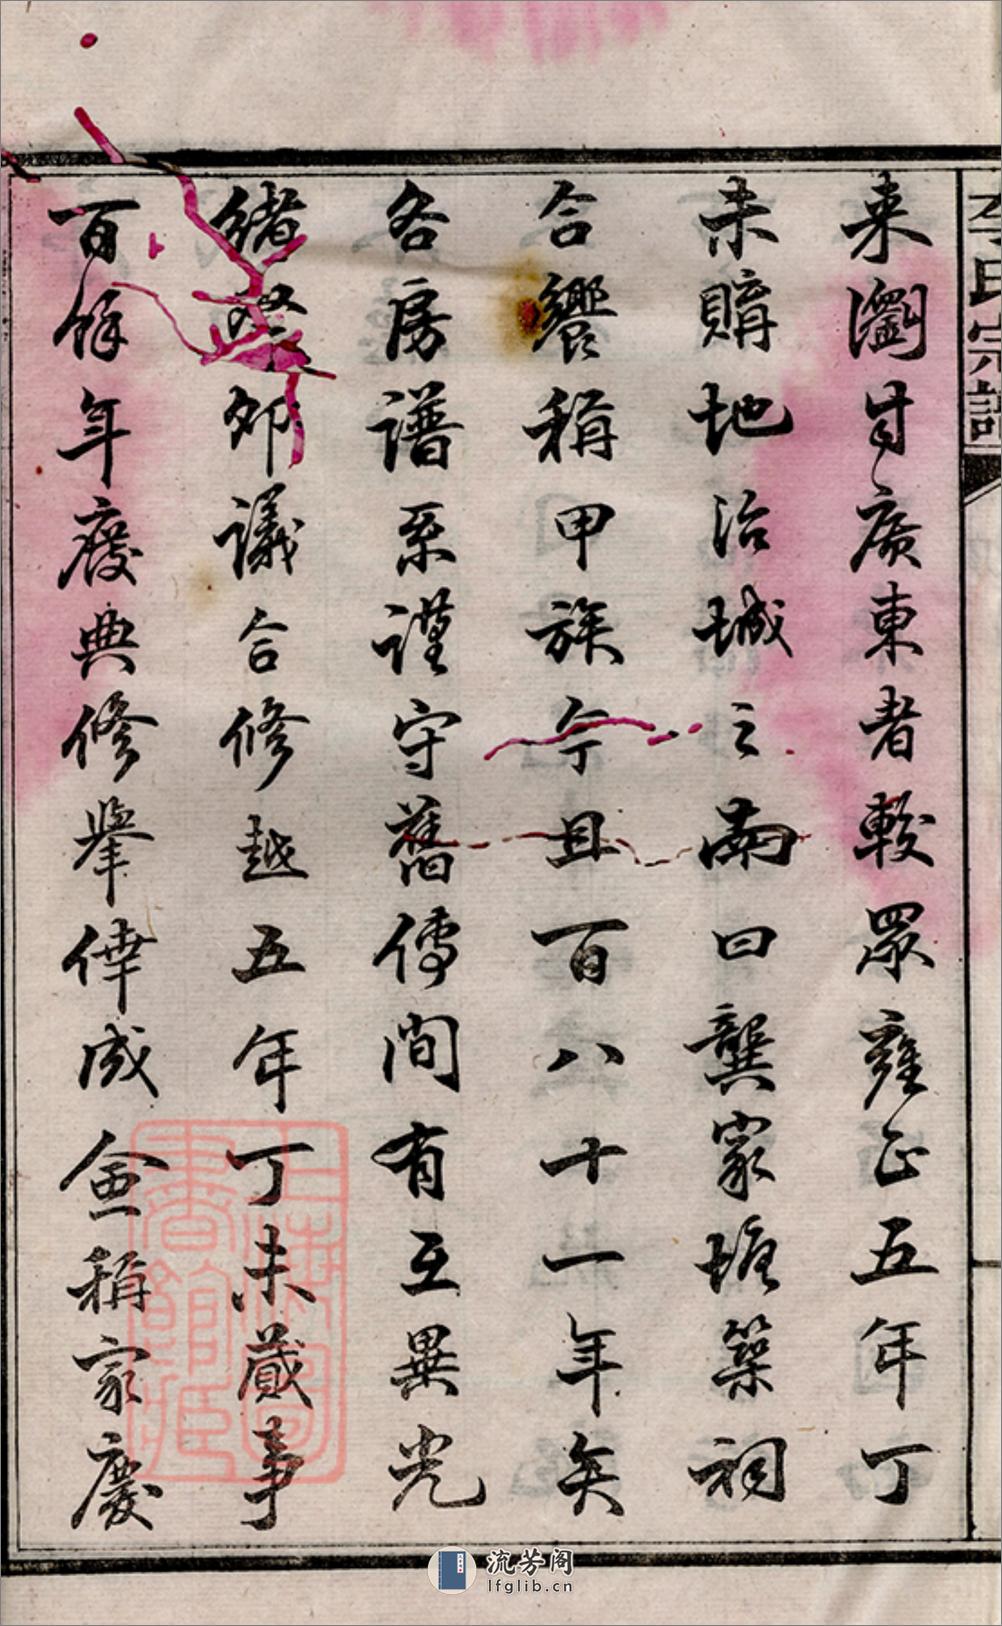 李氏宗譜
来瀏甘廣東者較眾雍正五年丁
未購地治城之南曰龔家塘築祠
合饗稱甲族今且百八十一年矣
各房譜系謹守舊傳間有互異光
緒癸卯議合修越五年丁未蕆事
百餘年廢典修舉倖成僉稱家慶
上海圖書館藏
流芳阁
lfglib.cn